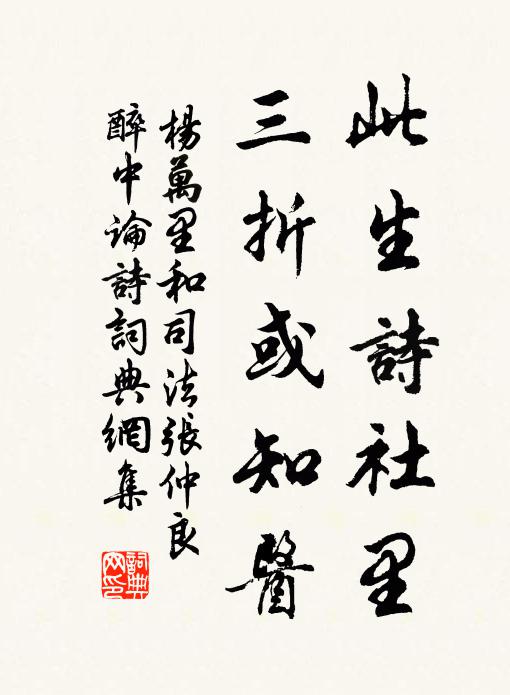 此生詩社里
三折或知醫
楊萬里和司法張仲良
醉中論詩詞典網集
詞典
网印